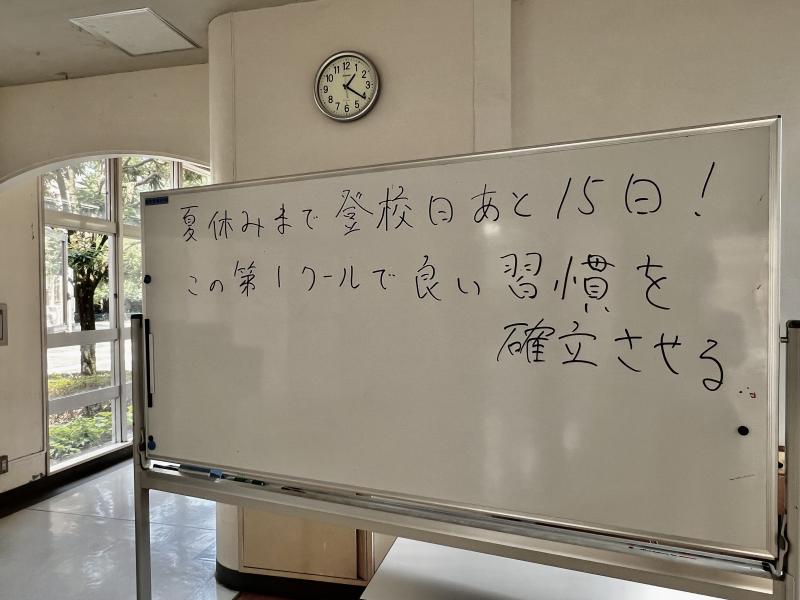 夏休みまで登校日あと15日!
この第1クールで良い習慣を
確立させる
12
1
2
3
4
5
6
7
8
9
10
11